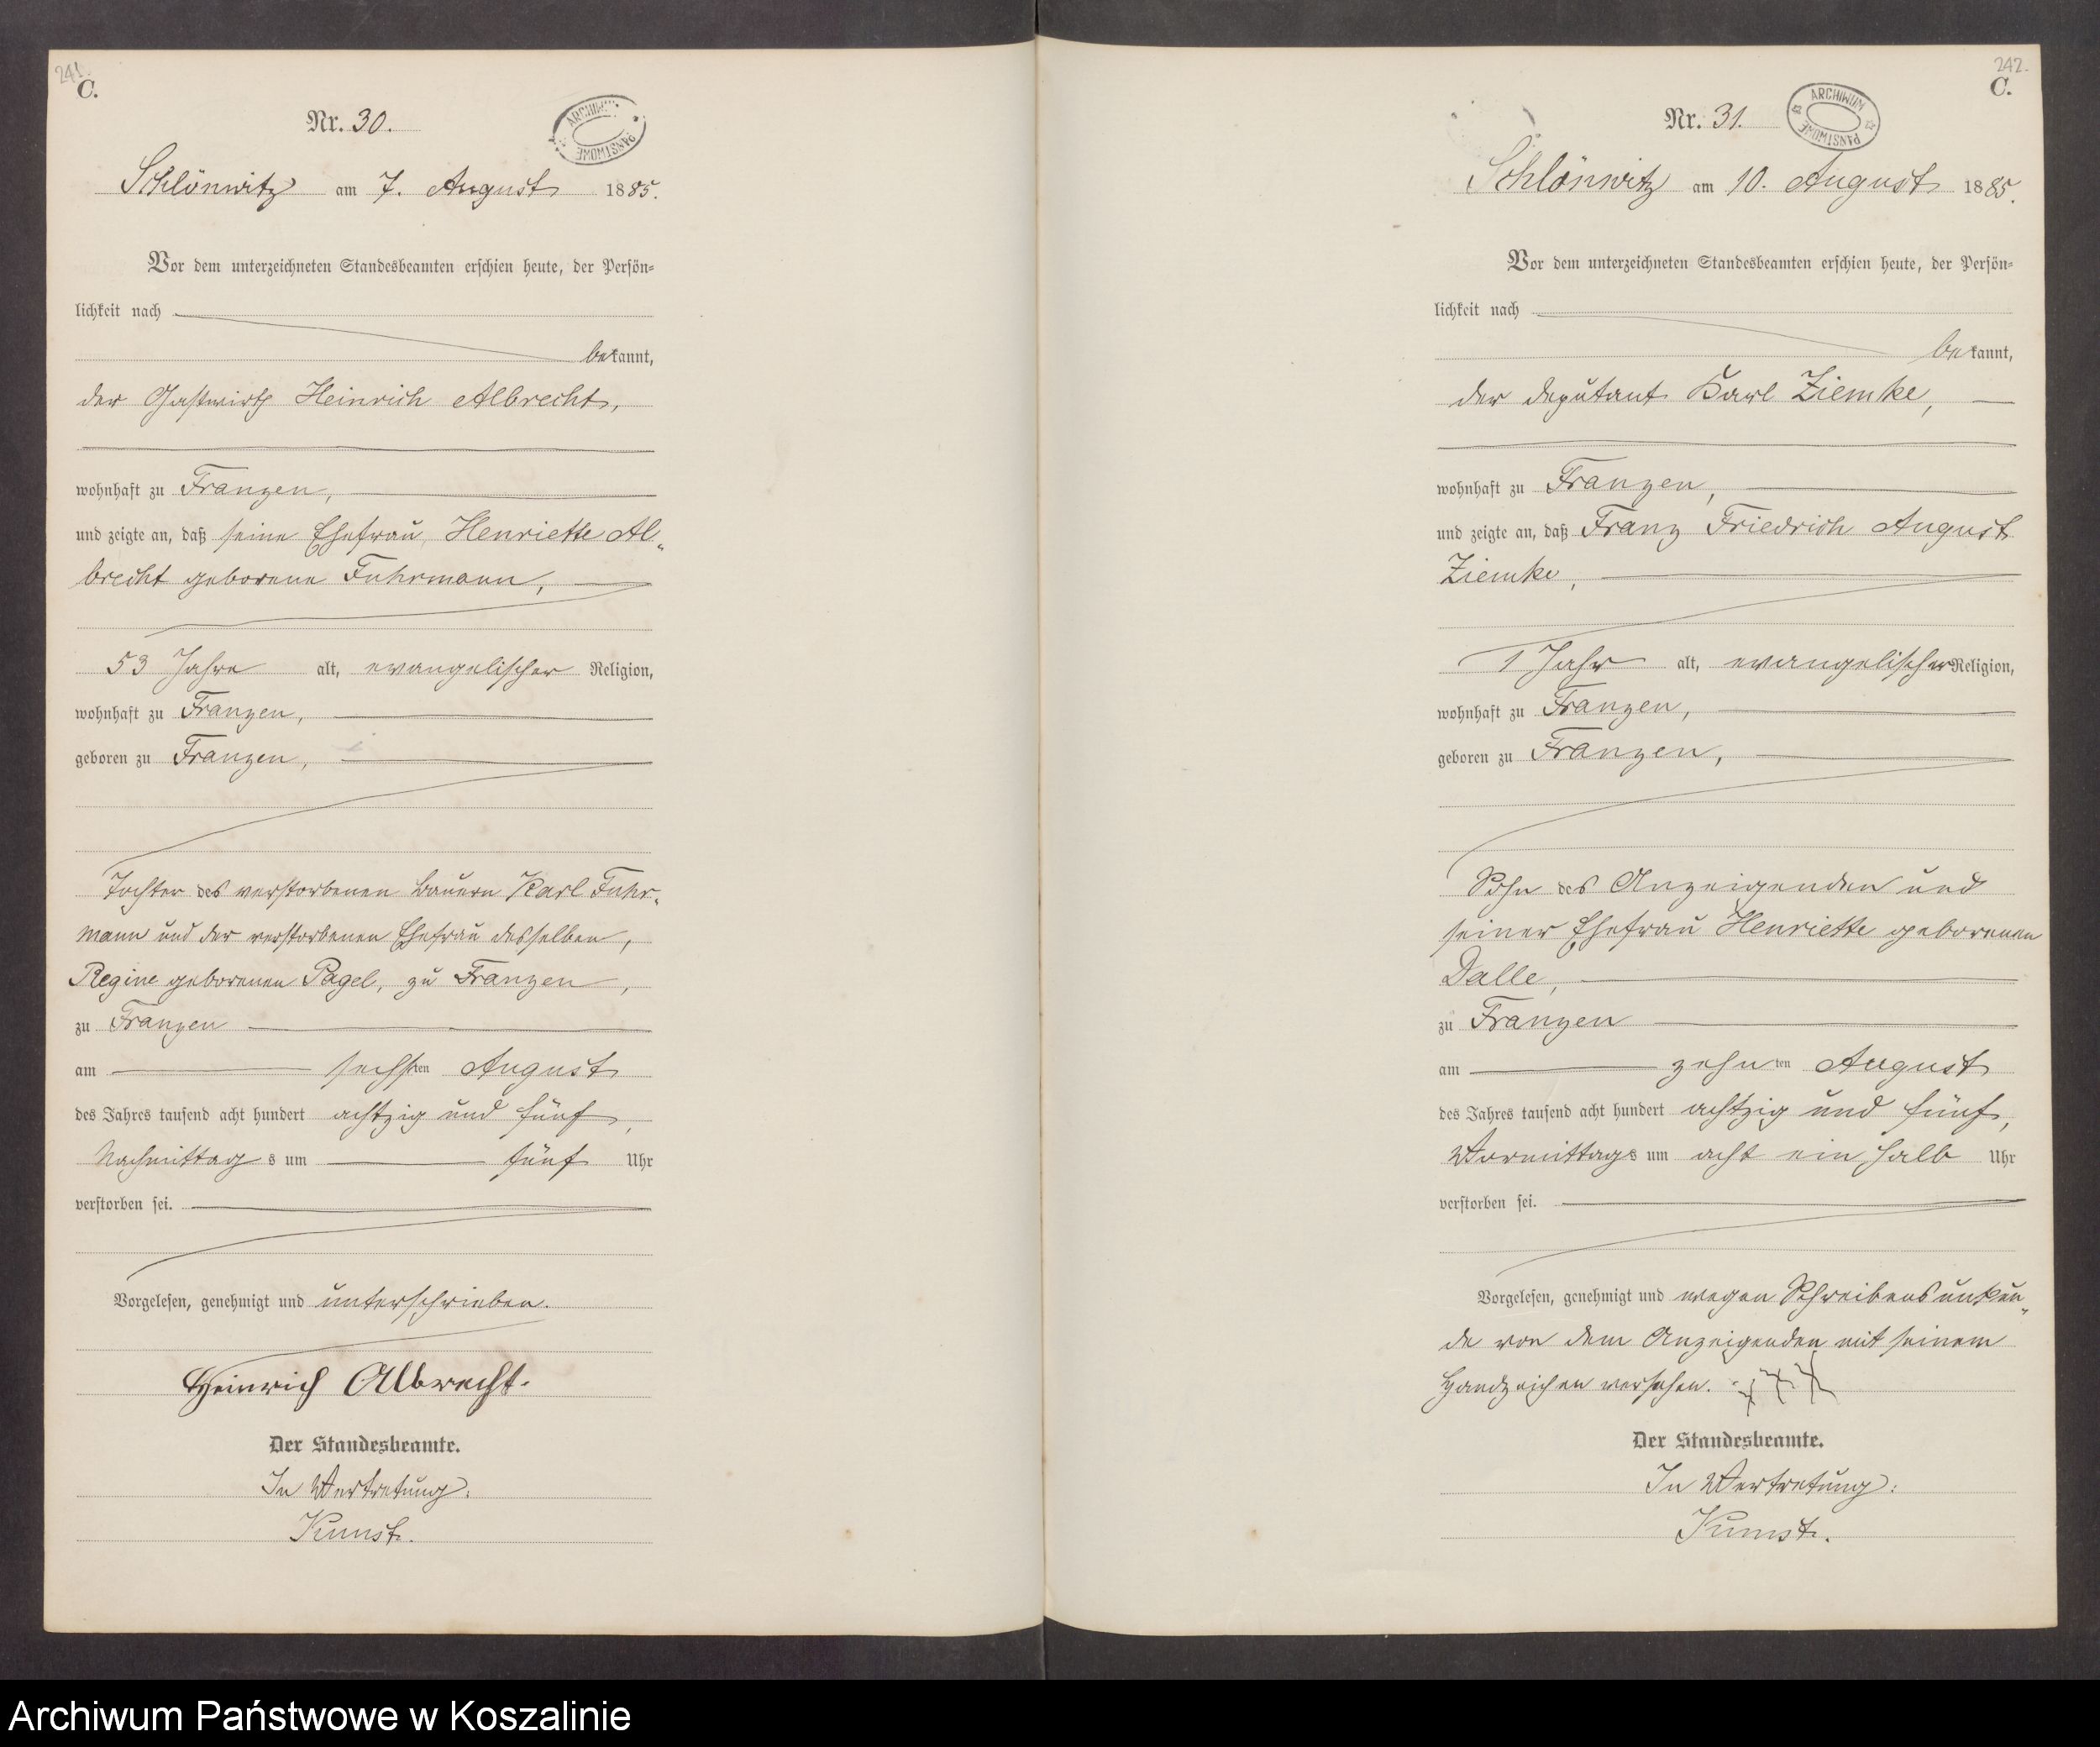 241.
C.
Nr. 30.
ARCHIWUM PAŃSTWOWE
Schlönwitz am 7. August 1885.
Vor dem unterzeichneten Standesbeamten erschien heute, der Persön-
lichkeit nach
bekannt,
der Gastwirth Heinrich Albrecht,
wohnhaft zu Franzen,
und zeigte an, daß seine Ehefrau Henriette Al-
brecht geborene Fuhrmann,
53 Jahre alt, evangelischer Religion,
wohnhaft zu Franzen,
geboren zu Franzen,
Tochter des verstorbenen Bauern Karl Fuhr-
mann und der verstorbenen Ehefrau desselben,
Regine geborenen Pagel, zu Franzen,
zu Franzen
am sechsten August
des Jahres tausend acht hundert achtzig und fünf,
Nachmittags um fünf Uhr
verstorben sei.
Vorgelesen, genehmigt und unterschrieben.
Heinrich Albrecht.
Der Standesbeamte.
In Vertretung:
Kunst.
242.
C.
Nr. 31.
ARCHIWUM PAŃSTWOWE
Schlönwitz am 10. August 1885.
Vor dem unterzeichneten Standesbeamten erschien heute, der Persön-
lichkeit nach
bekannt,
der Deputant Karl Ziemke,
wohnhaft zu Franzen,
und zeigte an, daß Franz Friedrich August
Ziemke,
1 Jahr alt, evangelischer Religion,
wohnhaft zu Franzen,
geboren zu Franzen,
Sohn des Anzeigenden und
seiner Ehefrau Henriette geborenen
Dalle,
zu Franzen
am zehnten August
des Jahres tausend acht hundert achtzig und fünf,
Vormittags um acht ein halb Uhr
verstorben sei.
Vorgelesen, genehmigt und wegen Schreibensunkun-
de von dem Anzeigenden mit seinem
Handzeichen versehen. XXX
Der Standesbeamte.
In Vertretung:
Kunst.
Archiwum Państwowe w Koszalinie